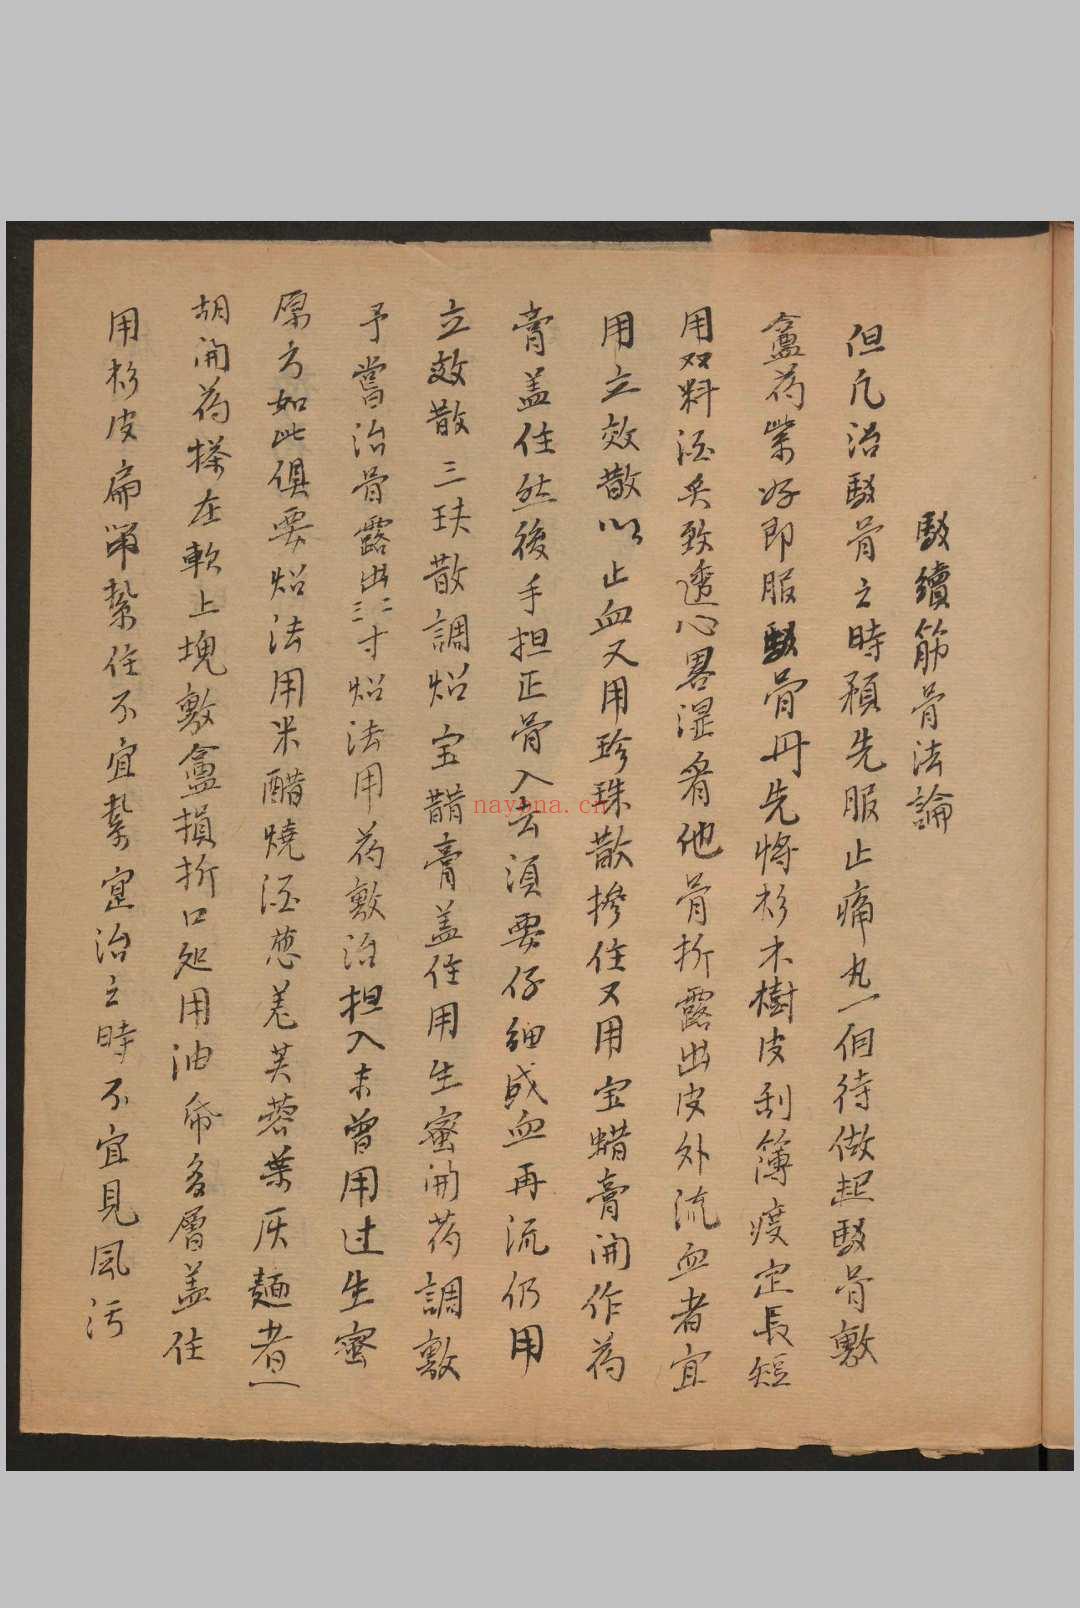 駁續筋骨法論
但凡治駁骨之時預先服止痛丸一個待做起駁骨敷
盦药業好即服駁骨丹先將杉木樹皮刮簿度定長短
用双料酒炙致透心畧湿看他骨折露出皮外流血者宜
用立效散以止血又用珍珠散摻住又用宝蜡膏開作為
膏盖住然後手担正骨入去須要仔細或血再流仍用
立效散三玞散調炤宝醋膏盖住用生蜜開药調敷
予嘗治骨露出二三寸炤法用药敷治担入未曾用过生蜜
原方如此俱要炤法用米醋燒酒葱羌芙蓉葉灰麵煮一
胡開药搽在軟上塊敷盦損折口处用油帋多層盖住
用杉皮扁篺紮住不宜紮寔治之時不宜見風污
nayona.cn